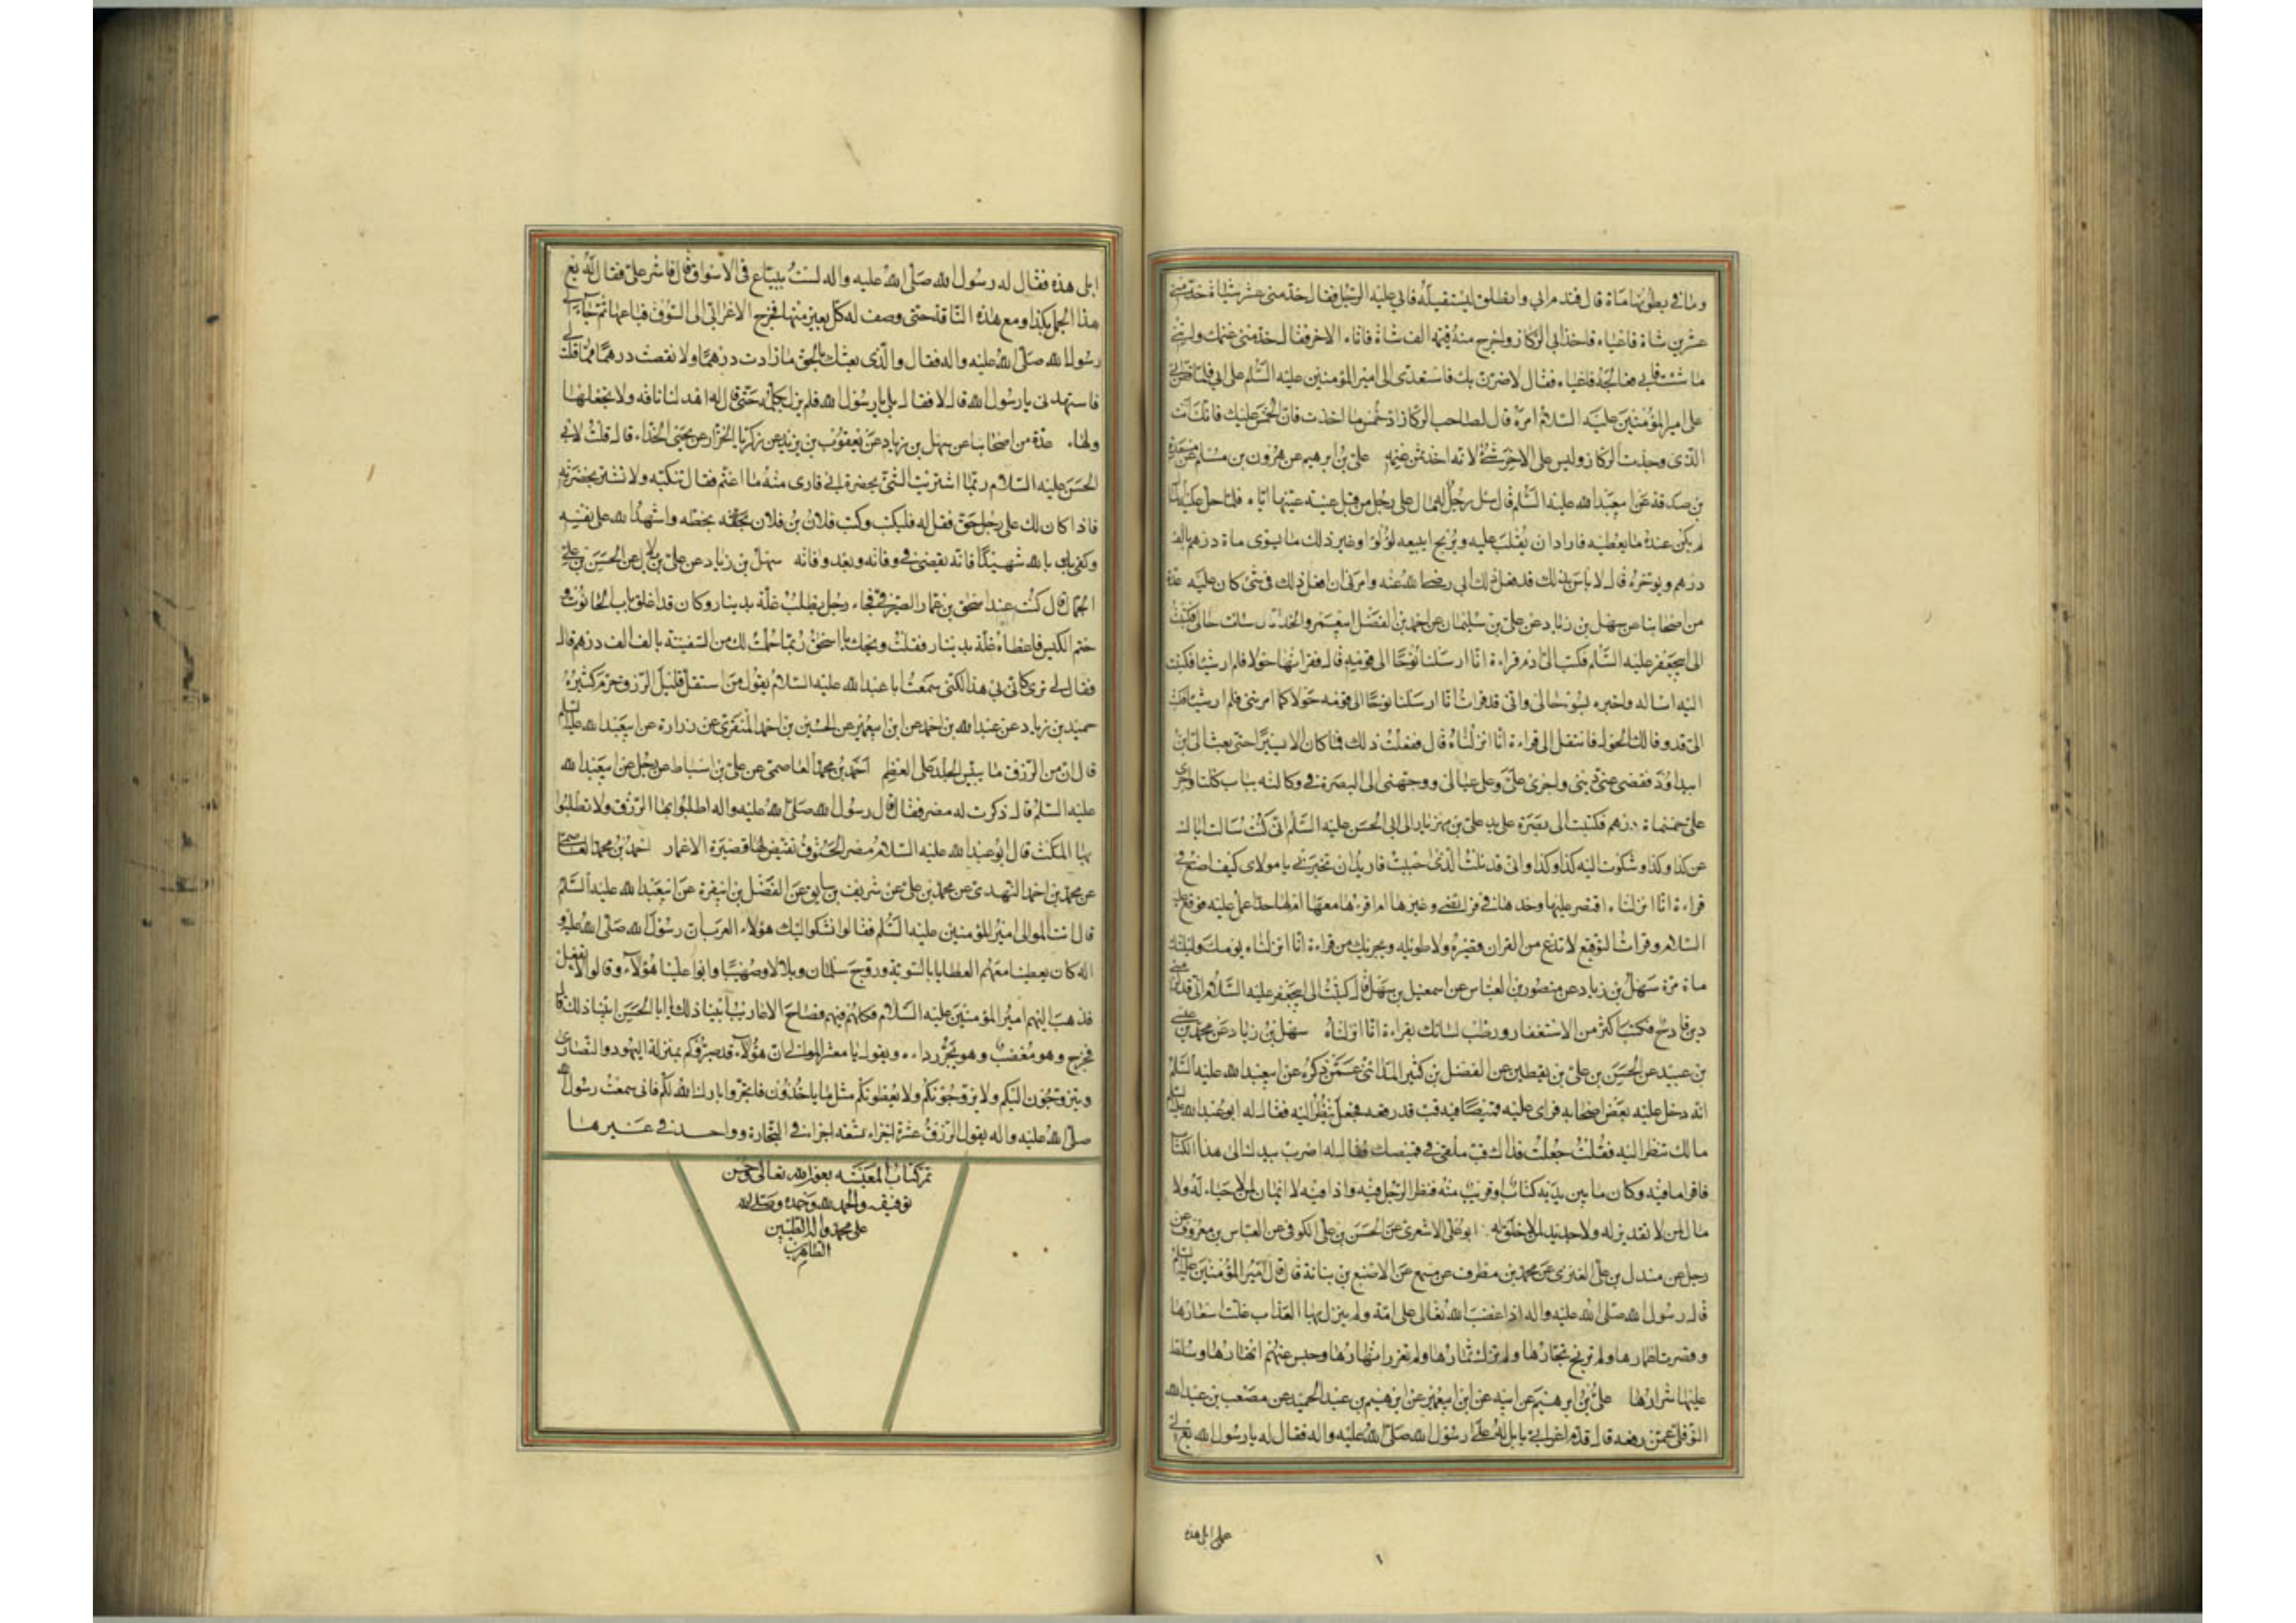 وما في بطونها مائة قال فندم ابي وانطلق ليستقيله فابى عليه الرجل فقال خذ مني عشر شياة خذ مني
عشرين شاة فاعياه فاخذ ابي الركاز واخرج منه قيمة الف شاة فاتاه الاخر فقال خذ مني غنمك وائتني
ما شئت فابى فعالجه فاعياه فقال لاضرن بك فاستعدى الى امير المؤمنين عليه السلام على ابي فلما قص ابي
على امير المؤمنين عليه السلام امره قال لصاحب الركاز اد خمس ما اخذت فان الخمس عليك فانك انت
الذي وجدت الركاز وليس على الاخر شئ لانه اخذ ثمن غنمه علي بن ابرهيم عن هرون بن مسلم عن مسعدة
بن صدقة عن ابي عبد الله عليه السلام قال سئل رجل له مال على رجل من قبل عينة عينها اياه فلما حل عليه المال
لم يكن عنده ما يعطيه فاراد ان يقلب عليه ويربح ايبيعه لؤلؤا وغير ذلك ما يسوى مائة درهم بالف
درهم ويوخره قال لا باس بذلك قد فعل ذلك ابي رضي الله عنه وامرني ان افعل ذلك في شئ كان عليه عدة
من اصحابنا عن سهل بن زياد عن علي بن سليمان عن احمد بن الفضل ابي عمرو الحذاء قال ساءت حالي فكتبت
الى ابي جعفر عليه السلام فكتب الي ادم قراءة انا ارسلنا نوحا الى قومه قال فقراتها حولا فلم ار شيئا فكتبت
اليه اساله واخبره بسوء حالي واني قد قرات انا ارسلنا نوحا الى قومه حولا كما امرتني فلم ار شيئا فكتب
الي قد وفا لك الحول فانتقل الى قراءة انا انزلناه قال ففعلت ذلك فما كان الا يسيرا حتى بعث الي ابن
ابي داود فقضى عني ديني واجرى علي وعلى عيالي ووجهني الى البصرة في وكالته بباب كلتا واجرى
علي خمسمائة درهم فكتبت الى بصرة على يد علي بن مهزيار الى ابي الحسن عليه السلام اني كنت سالت اباك
عن كذا وكذا وشكوت اليه كذا وكذا واني قد نلت الذي احببت فاريد ان تخبرني يا مولاي كيف اصنع في
قراءة انا انزلناه اقتصر عليها وحدها في فرايضي وغيرها ام اقرء معها غيرها ام لها حد اعمل عليه فوقع عليه
السلام وقرات التوقيع لا تدع من القران قصيره ولا طويله ويجزيك من قراءة انا انزلناه يومك وليلتك
مائة مرة سهل بن زياد عن منصور بن العباس عن اسمعيل بن سهل قال كتبت الى ابي جعفر عليه السلام اني قد لزمني
دين فادح فكتب اكثر من الاستغفار ورطب لسانك بقراءة انا انزلناه سهل بن زياد عن محمد بن عيسى
بن عبيد عن الحسين بن علي بن يقطين عن الفضل بن كثير المدائني عمن ذكره عن ابي عبد الله عليه السلام
انه دخل عليه بعض اصحابه فراى عليه قميصا فيه قب قد رقعه فجعل ينظر اليه فقال له ابو عبد الله عليه السلام
ما لك تنظر اليه فقلت جعلت فداك قب ملقى في قميصك فقال له اضرب بيدك الى هذا الكتاب
فاقرا ما فيه وكان ما بين يديه كتاب او قريب منه فنظر الرجل فيه واذا فيه لا ايمان لمن لا حياء له ولا
مال لمن لا تقدير له ولا جديد لمن لا خلق له ابو علي الاشعري عن الحسن بن علي الكوفي عن العباس بن معروف عن
رجل عن مندل بن علي العنزي عن محمد بن مطرف عن مسمع عن الاصبغ بن نباتة قال قال امير المؤمنين عليه السلام
قال رسول الله صلى الله عليه واله اذا غضب الله تعالى على امة ولم ينزل بها العذاب غلت اسعارها
وقصرت اعمارها ولم تربح تجارها ولم تزك ثمارها ولم تغزر انهارها وحبس عنهم امطارها وسلط
عليها شرارها علي بن ابرهيم عن ابيه عن ابن ابي عمير عن ابرهيم بن عبد الحميد عن مصعب بن عبد الله
النوفلي عمن رفعه قال قدم اعرابي بابل له على رسول الله صلى الله عليه واله فقال له يا رسول الله بع لي
على ابلي هذه
ابلي هذه فقال له رسول الله صلى الله عليه واله لست ببياع في الاسواق قال فاشر علي فقال له بع
هذا الجمل بكذا وبع هذه الناقة حتى وصف له كل بعير منها فخرج الاعرابي الى السوق فباعها ثم جاء الى
رسول الله صلى الله عليه واله فقال والذي بعثك بالحق ما زادت درهما ولا نقصت درهما مما قلت لي
فاستهدني يا رسول الله قال لا فقال بلى يا رسول الله فلم يزل يكلمه حتى قال له اهد لنا ناقة ولا تجعلها
ولها عدة من اصحابنا عن سهل بن زياد عن يعقوب بن يزيد عن زكريا الخزاز عن يحيى الحذاء قال قلت لابي
الحسن عليه السلام ربما اشتريت الشئ بحضرة ابي فارى منه ما اغتم فقال تنكبه ولا تشتر بحضرته
فاذا كان لك على رجل حق فقل له فليكتب وكتب فلان بن فلان بخطه واشهد الله على نفسه
وكفى بالله شهيدا فانه يقضى في وفاته وبعد وفاته سهل بن زياد عن علي بن بلال عن الحسن بن علي
الجمال قال كنت عند اسحق بن عمار الصيرفي فجاء رجل يطلب غلة بدينار وكان قد اغلق باب الحانوت و
ختم الكيس فاعطاه غلة بدينار فقلت ويحك يا اسحق ربما حملت لك من السفينة بالف الف درهم قال
فقال لي ترى كان بي هذا لكني سمعت ابا عبد الله عليه السلام يقول من استقل قليل الرزق حرم كثيره
حميد بن زياد عن عبد الله بن احمد عن ابن ابي عمير عن الحسين بن احمد المنقري عن زرارة عن ابي عبد الله عليه السلم
قال ان من الرزق ما ييبس الجلد على العظم احمد بن محمد العاصمي عن علي بن اسباط عن رجل عن ابي عبد الله
عليه السلم قال ذكرت له مصر فقال قال رسول الله صلى الله عليه واله اطلبوا بها الرزق ولا تطلبوا
بها المكث قال ابو عبد الله عليه السلام مصر الحتوف تقيض لها قصيرة الاعمار احمد بن محمد العاصمي
عن محمد بن احمد النهدي عن محمد بن علي عن شريف بن سابق عن الفضل بن ابي قرة عن ابي عبد الله عليه السلم
قال اتت الموالي امير المؤمنين عليه السلم فقالوا نشكوا اليك هؤلاء العرب ان رسول الله صلى الله عليه و
اله كان يعطينا معهم العطايا بالسوية وزوج سلمان وبلالا وصهيبا وابوا علينا هؤلاء وقالوا لا نفعل
فذهب اليهم امير المؤمنين عليه السلام فكلمهم فيهم فصاح الاعاريب ابينا ذلك يا ابا الحسن ابينا ذلك قال
فخرج وهو مغضب وهو يجر رداءه ويقول يا معشر الموالي ان هؤلاء قد صيروكم بمنزلة اليهود والنصارى
ويتزوجون اليكم ولا يزوجونكم ولا يعطونكم مثل ما ياخذون فاتجروا بارك الله لكم فاني سمعت رسول الله
صلى الله عليه واله يقول الرزق عشرة اجزاء تسعة اجزاء في التجارة وواحد في غيرها
تم كتاب المعيشة بعون الله تعالى وحسن
توفيقه والحمد لله وحده وصلى الله
على محمد واله الطيبين
الطاهرين